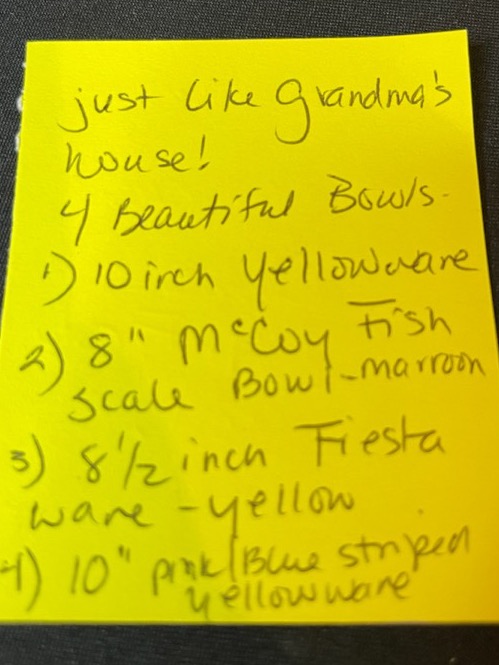 just like Grandma's
house!
4 Beautiful Bowls.
1) 10 inch yellowware
2) 8" McCoy Fish
scale Bowl-marroon
3) 8 1/2 inch Fiesta
ware - yellow
4) 10" pink/Blue striped
yellowware